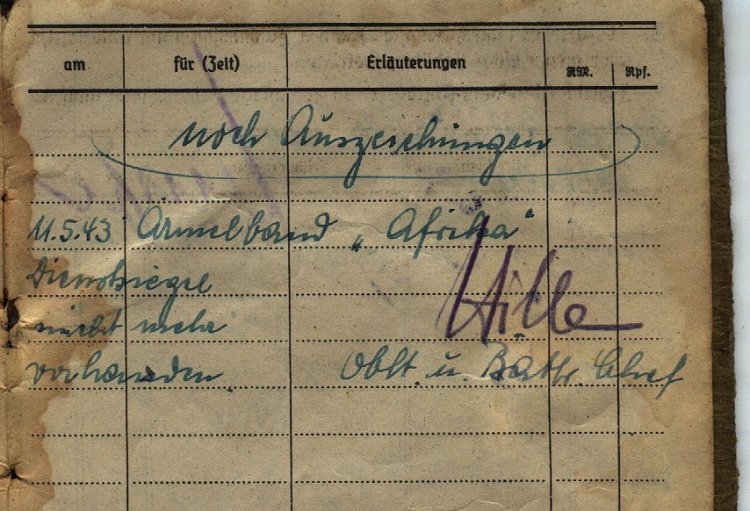 am für (Zeit) Erläuterungen RM. Rpf.
noch Auszeichungen
11.5.43 Ärmelband „Afrika“
Dienstsiegel
nicht mehr
vorhanden.
Hille
Oblt. u. Battr. Chef